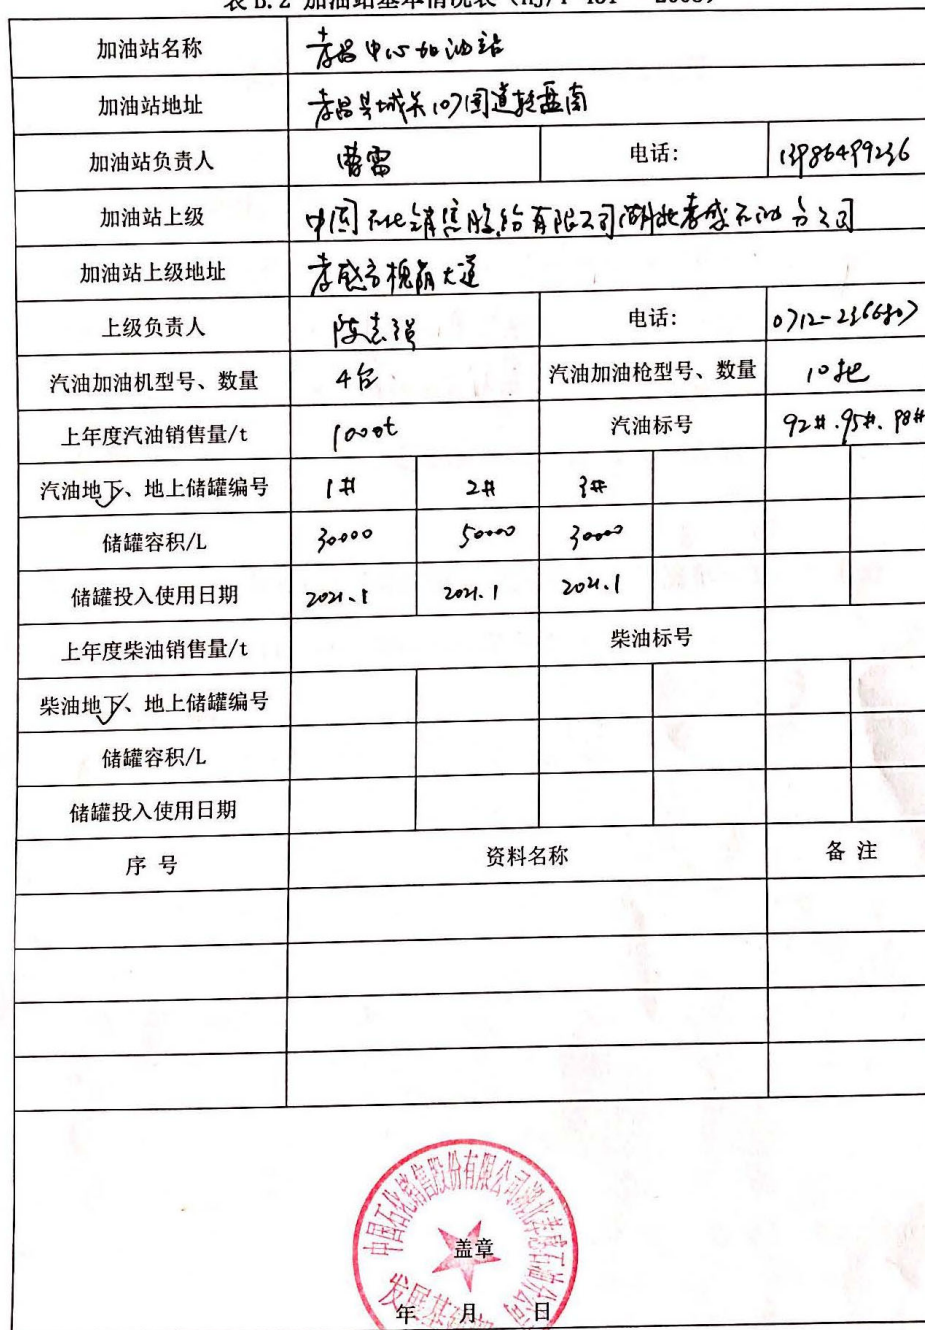 加油站名称 孝昌中心加油站
加油站地址 孝昌县城关107国道转盘南
加油站负责人 曹雷 电话: 13986499236
加油站上级 中国石化销售股份有限公司湖北孝感石油分公司
加油站上级地址 孝感市槐荫大道
上级负责人 陈志强 电话: 0712-2366807
汽油加油机型号、数量 4台 汽油加油枪型号、数量 10把
上年度汽油销售量/t 1000t 汽油标号 92#.95#.98#
汽油地下、地上储罐编号 1# 2# 3#
储罐容积/L 30000 50000 30000
储罐投入使用日期 2021.1 2021.1 2021.1
上年度柴油销售量/t 柴油标号
柴油地下、地上储罐编号
储罐容积/L
储罐投入使用日期
序 号 资料名称 备 注
中国石化销售股份有限公司湖北孝感石油分公司
盖章
发展基建
年 月 日